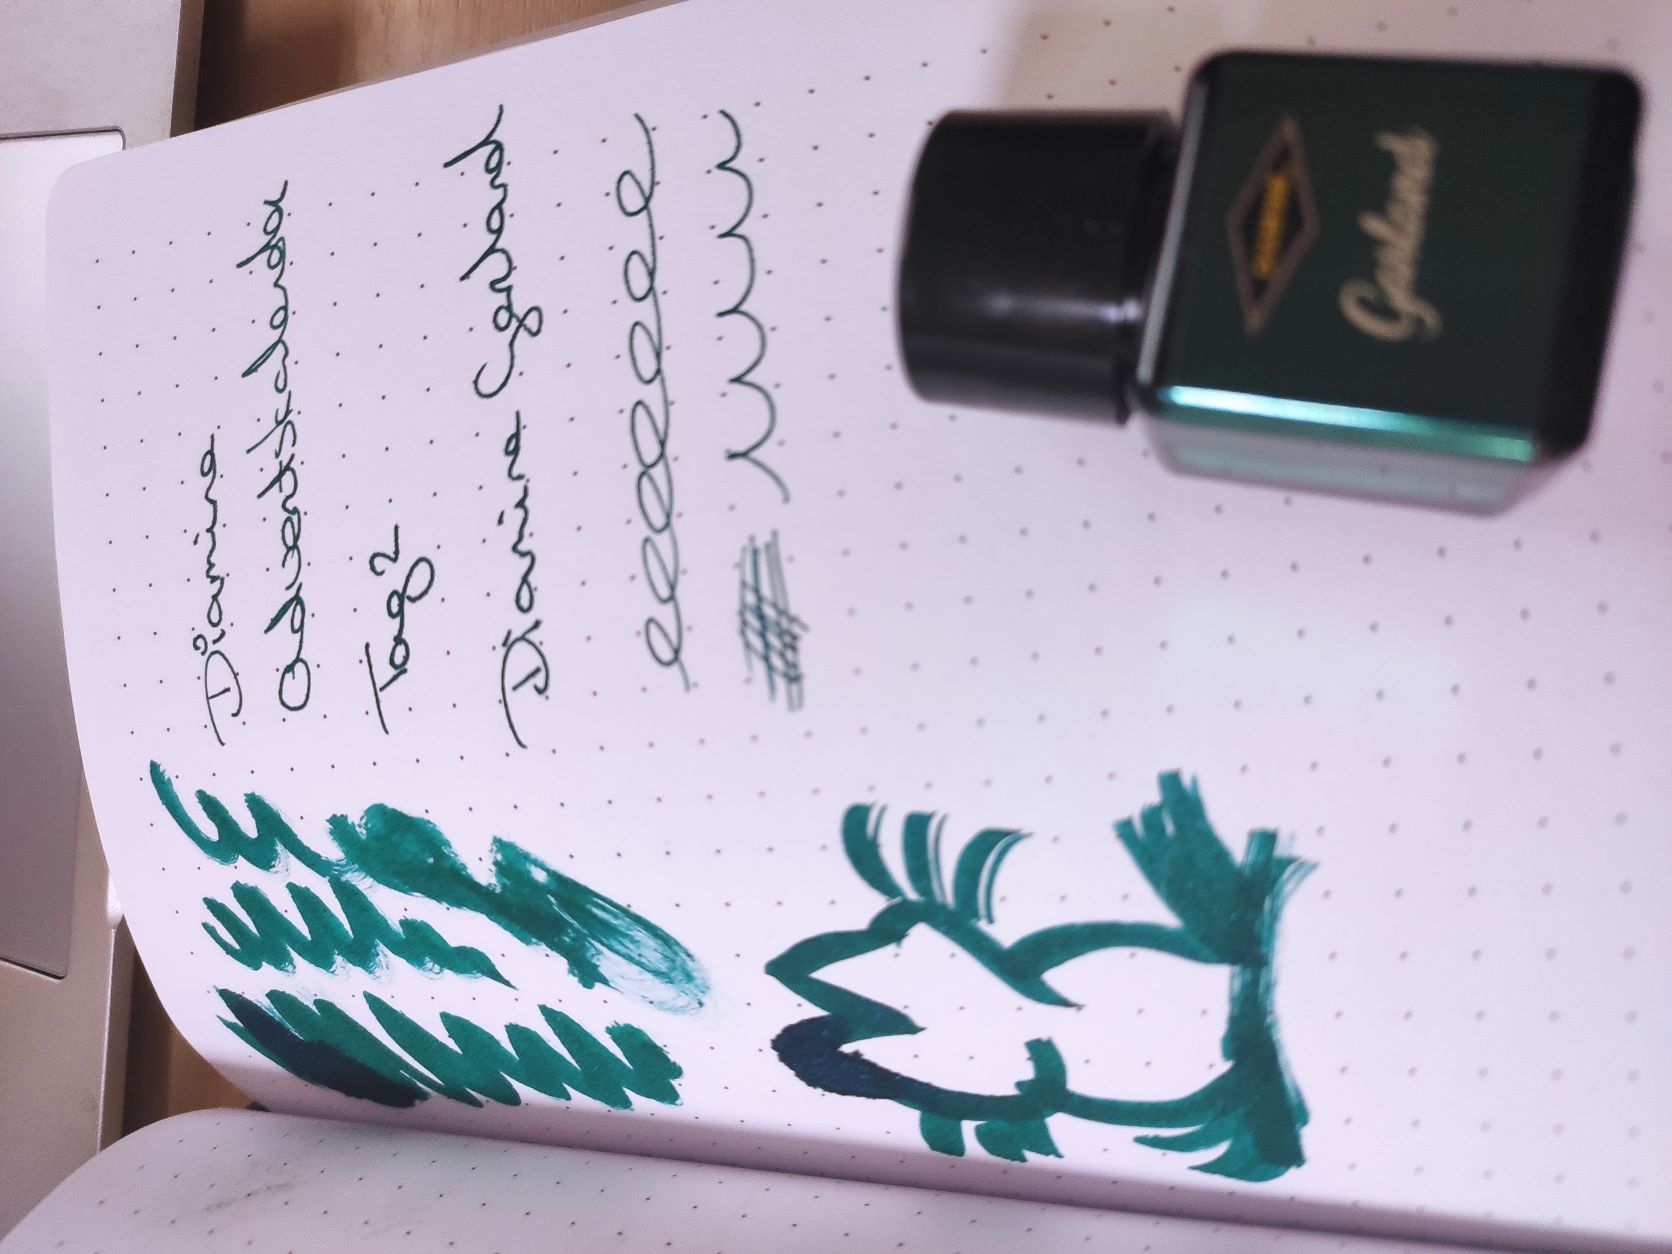 Diamine
Adventskalenda
Tag 2
Diamine Garland
DIAMINE
Garland